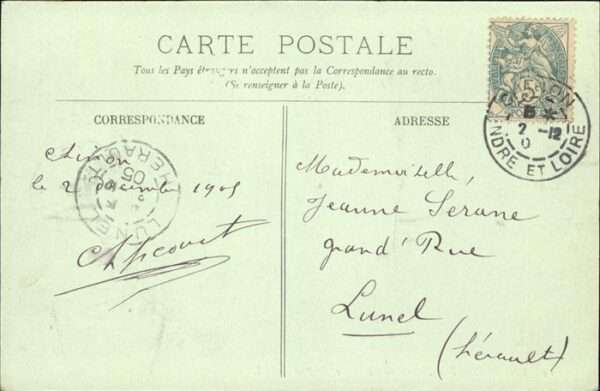 CARTE POSTALE
Tous les Pays étrangers n'acceptent pas la Correspondance au recto.
(Se renseigner à la Poste).
CORRESPONDANCE
Chinon
le 2 décembre 1905
ADRESSE
Mademoiselle,
Jeanne Serane
grand' Rue
Lunel
(hérault)
5c
CHINON
2 -12
INDRE ET LOIRE
LUNEL
05
HERAULT